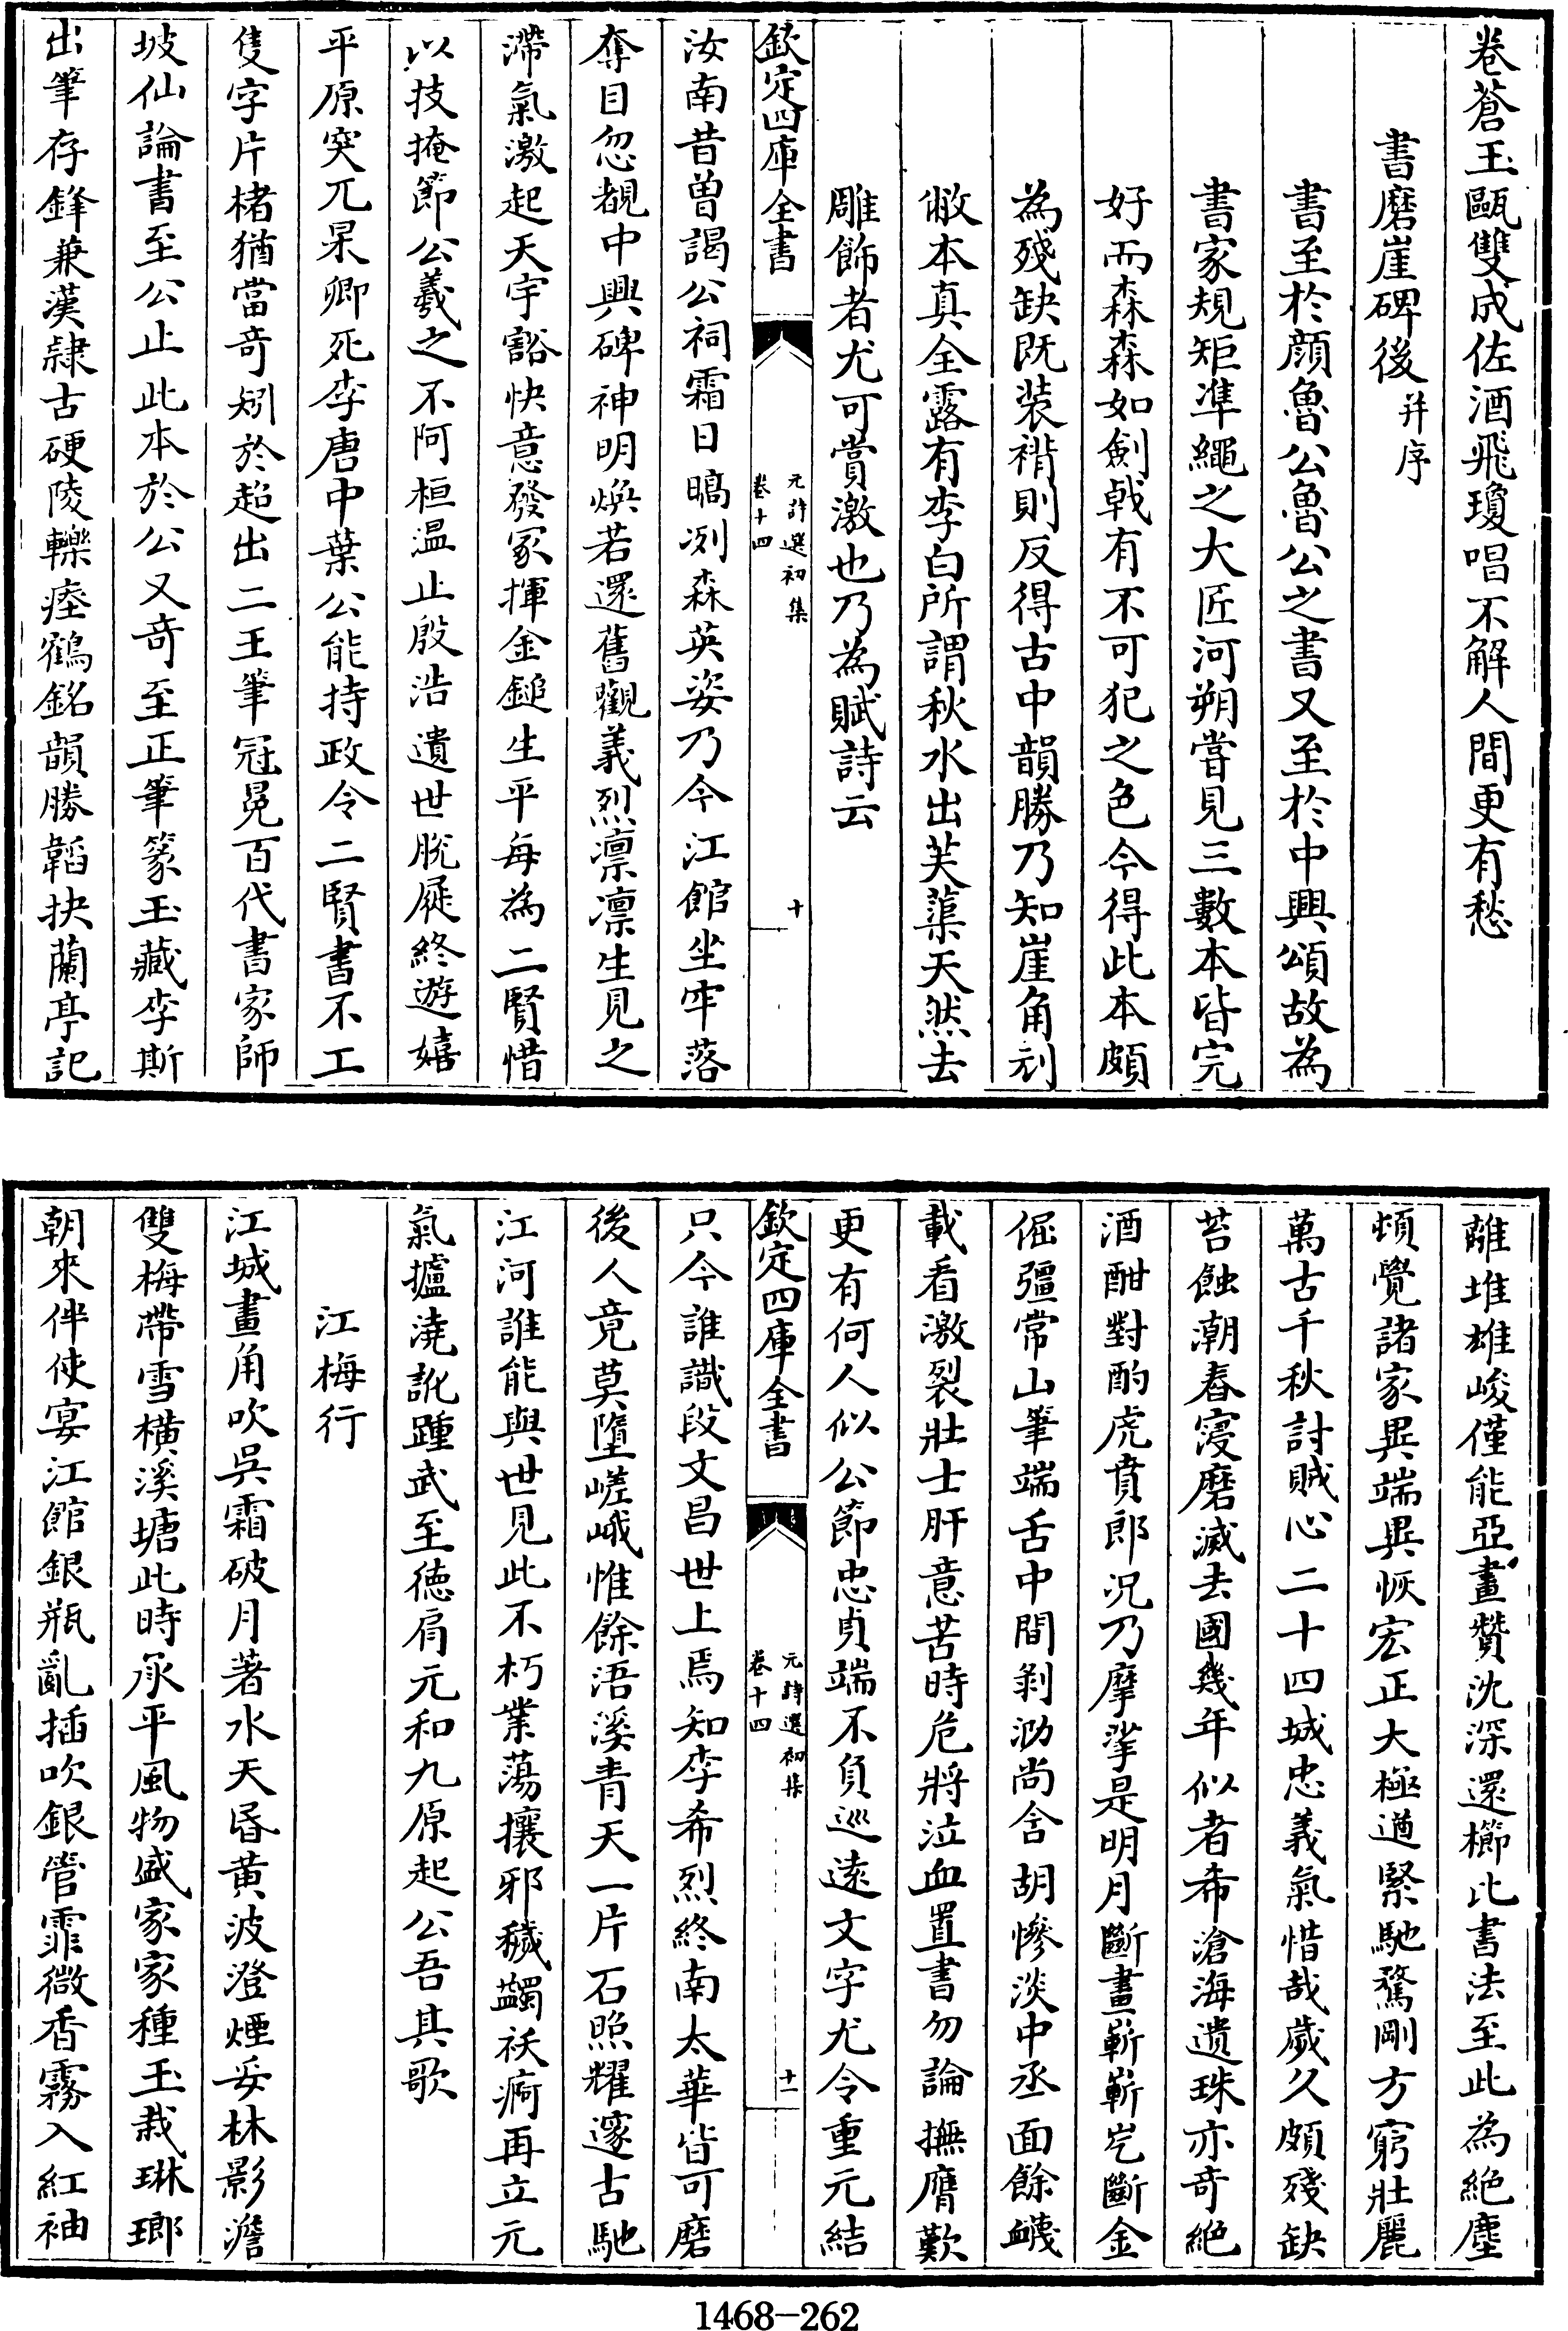 卷蒼玉甌雙成佐酒飛瓊唱不解人間更有愁
書磨崖碑後 并序
書至於顔魯公魯公之書又至於中興頌故為
書家規矩準繩之大匠河朔嘗見三數本皆完
好而森森如劍戟有不可犯之色今得此本頗
為殘缺既装褙則反得古中韻勝乃知崖角刓
敝本真全露有李白所謂秋水出芙蕖天然去
雕飾者尤可賞激也乃為賦詩云
欽定四庫全書
元詩選初集
卷十四
十
汝南昔曽謁公祠霜日暠冽森英姿乃今江館坐牢落
奪目忽覩中興碑神明煥若還舊觀義烈凛凛生見之
滯氣激起天宇豁快意發冢揮金鎚生平每為二賢惜
以技掩節公羲之不阿桓温止殷浩遺世脱屣終遊嬉
平原突兀杲卿死李唐中葉公能持政令二賢書不工
隻字片楮猶當竒矧於超出二王筆冠冕百代書家師
坡仙論書至公止此本於公又竒至正筆篆玉藏李斯
出筆存鋒兼漢隷古硬陵轢瘞鶴銘韻勝韜抉蘭亭記
離堆雄峻僅能亞畫贊沈深還櫛比書法至此為絶塵
頓覺諸家異端異恢宏正大極遒緊馳騖剛方窮壯麗
萬古千秋討賊心二十四城忠義氣惜哉歲久頗殘缺
苔蝕潮舂寖磨滅去國幾年似者希滄海遺珠亦竒絶
酒酣對酌虎賁郎况乃摩挲是明月斷畫嶄嶄屹斷金
倔彊常山筆端舌中間剥泐尚含胡慘淡中丞面餘衊
載看激裂壯士肝意苦時危將泣血置書勿論撫膺歎
更有何人似公節忠貞端不負巡逺文字尤令重元結
欽定四庫全書
元詩選初集
卷十四
十一
只今誰識段文昌世上焉知李希烈終南太華皆可磨
後人竟莫墮嵯峨惟餘浯溪青天一片石照耀邃古馳
江河誰能與世見此不朽業蕩攘邪穢蠲祅痾再立元
氣攄澆訛踵武至徳肩元和九原起公吾其歌
江梅行
江城畫角吹吳霜破月著水天昏黄波澄煙妥林影澹
雙梅帶雪横溪塘此時承平風物盛家家種玉栽琳瑯
朝來伴使宴江館銀瓶亂插吹銀管霏微香霧入紅袖
1468-262